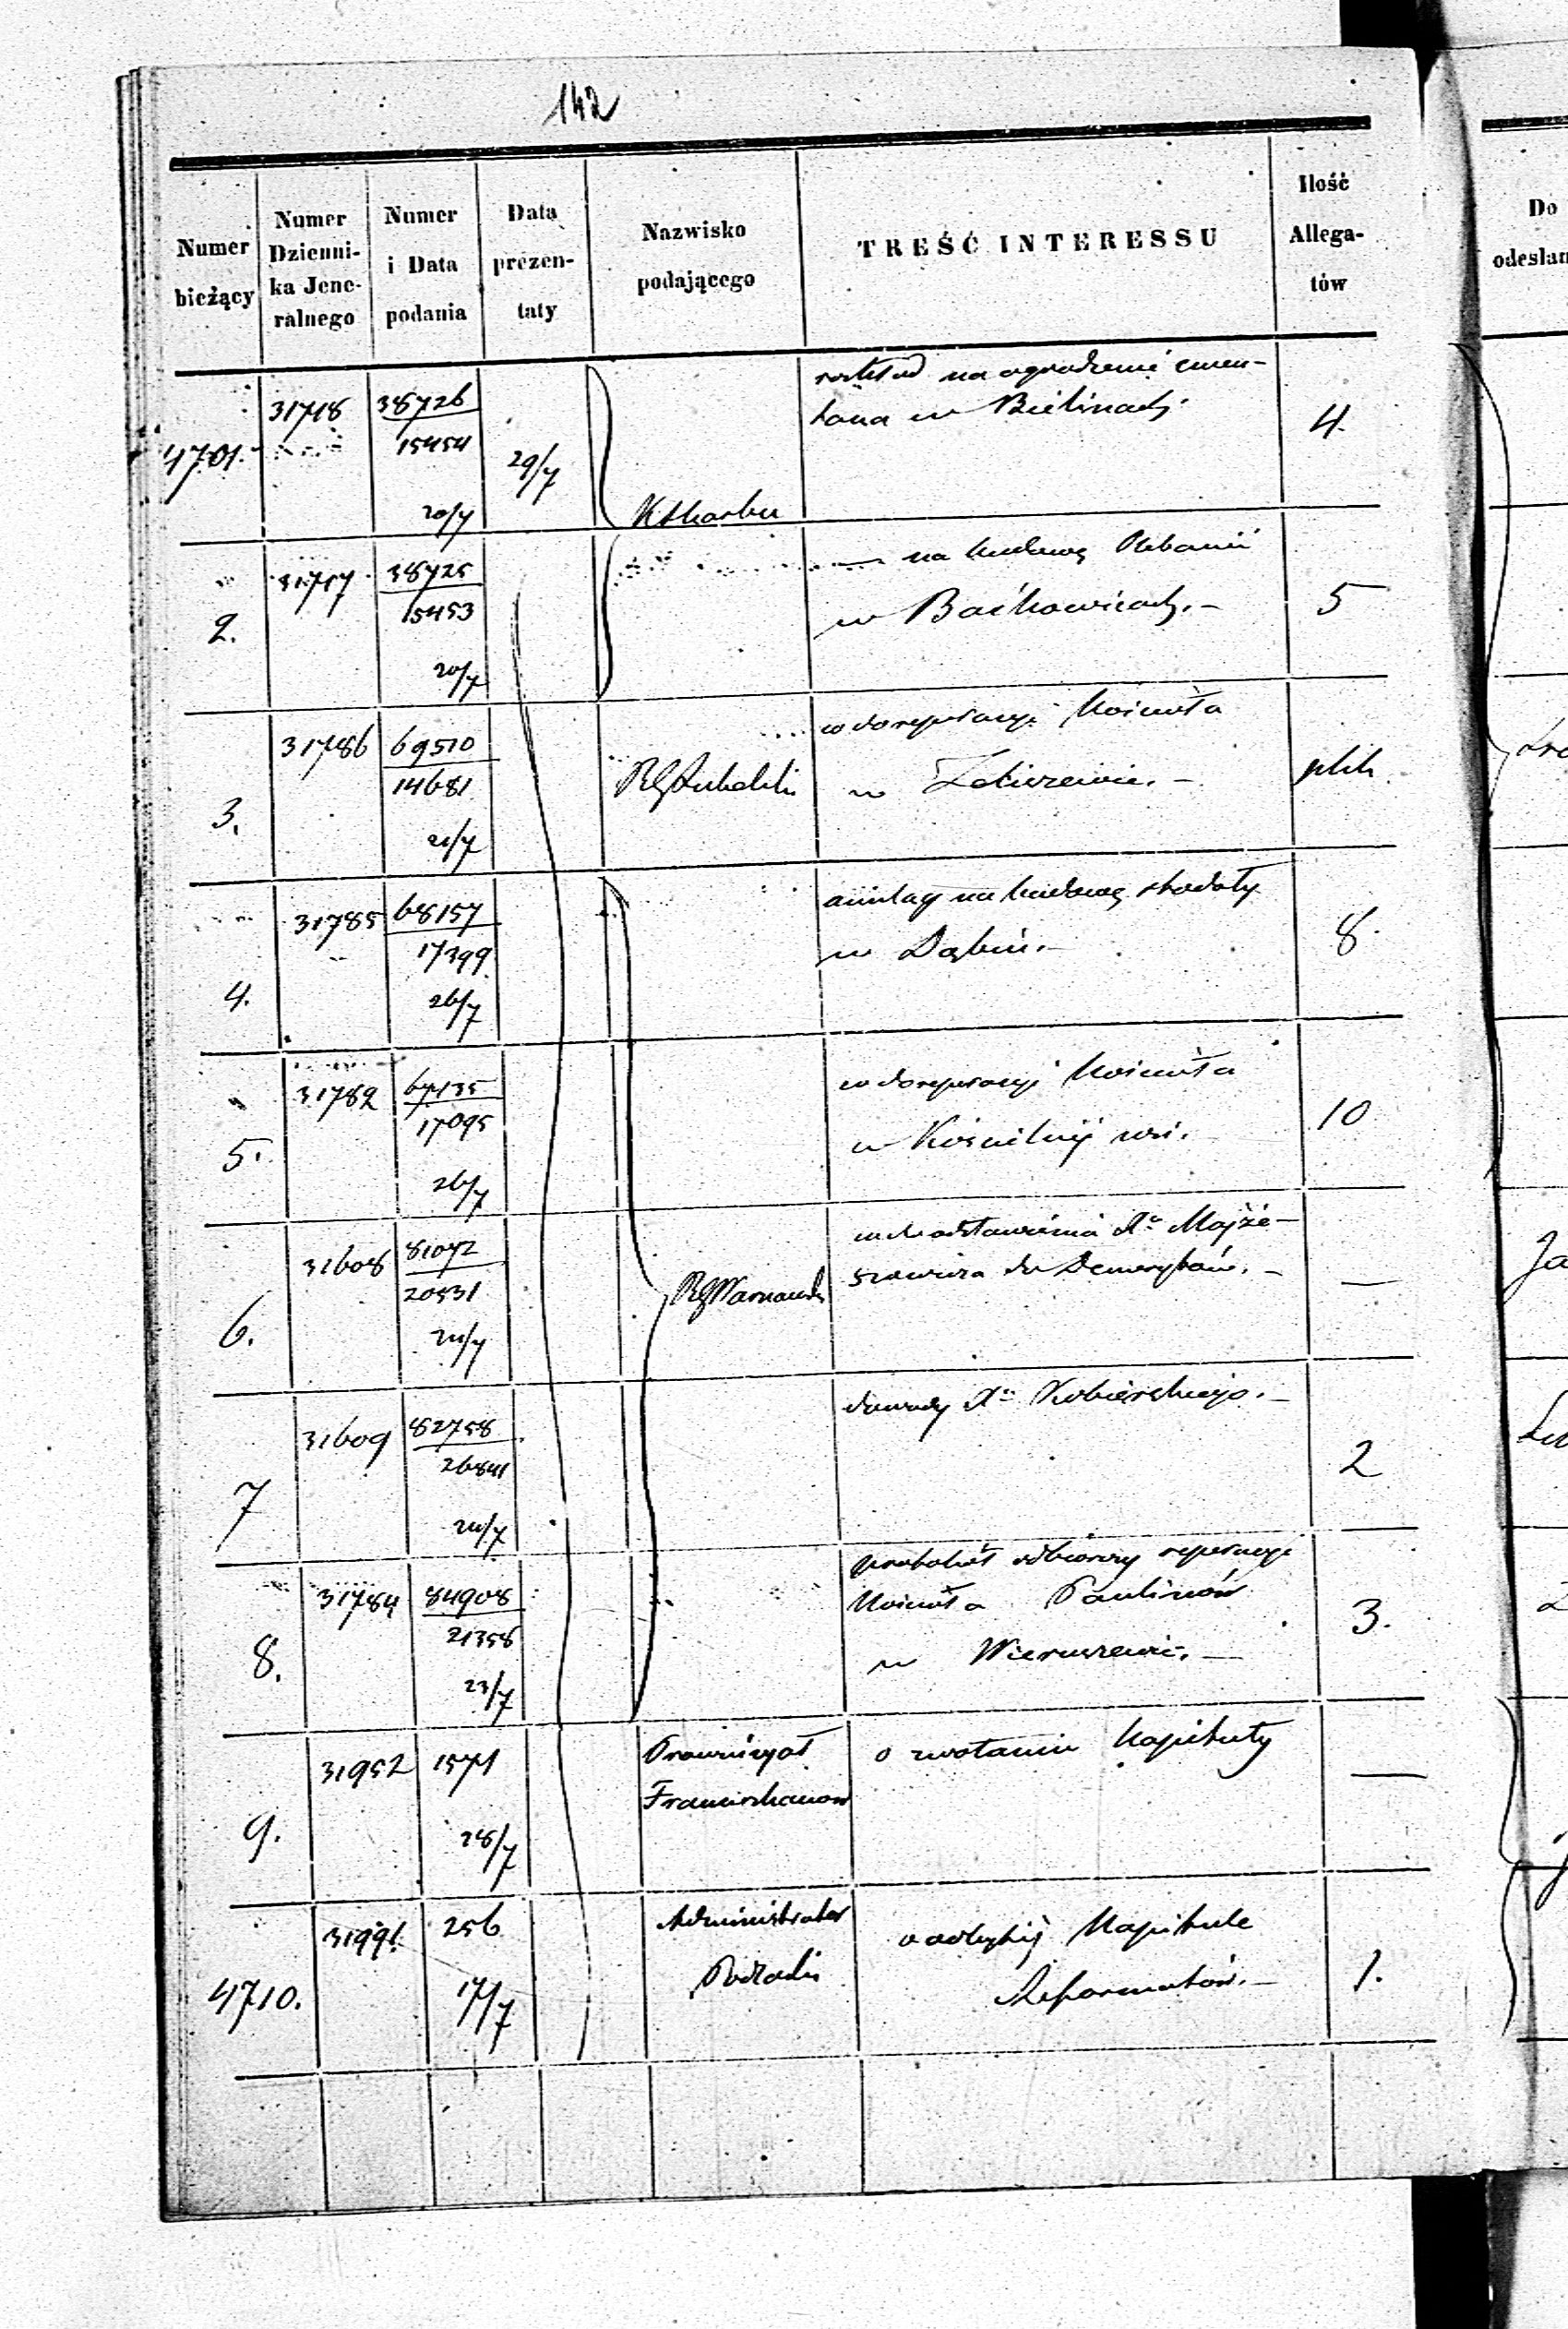 142
Numer bieżący
Numer Dzienni-ka Jene-ralnego
Numer i Data podania
Data prezen-taty
Nazwisko podającego
TREŚĆ INTERESSU
Ilość Allega-tów
Do
odesłan
4701. 31718 38726 15454 20/7 29/7 K Skarbu
rozkład na ogrodzenie cmen-
tarza w Bielinach
4.
2. 31717 38725 15453 20/7
— na budowę Plebanii
w Baćkowicach. —
5
3. 31786 69510 14681 21/7 RG Lubelski
w do reperacyi Kościoła
w —
plik
4. 31785 68157 17399 26/7
anszlag na budowę stodoły
w Dąbiu. —
8.
5. 31782 67135 17095 26/7
w do reperacyi Kościoła
w Kościelnej wsi.
10
6. 31608 81072 20531 24/7 RG Warszawski
odstawienia Xa Majże-
szowicza do Demerytów. —
—
7 31609 82758 26841 24/7
dowody Xa Kobierskiego. —
2
8. 31784 84908 21358 23/7
protokół odbiorczy reperacyi
Kościoła Paulinów
w Wieruszowie. —
3.
9. 31952 1571 28/7
Prowincyał
Franciszkanów
o zwołaniu Kapituły
—
4710. 31991. 256 17/7
Administrator
Podlaski
o odbytej Kapitule
Reformatów. —
1.